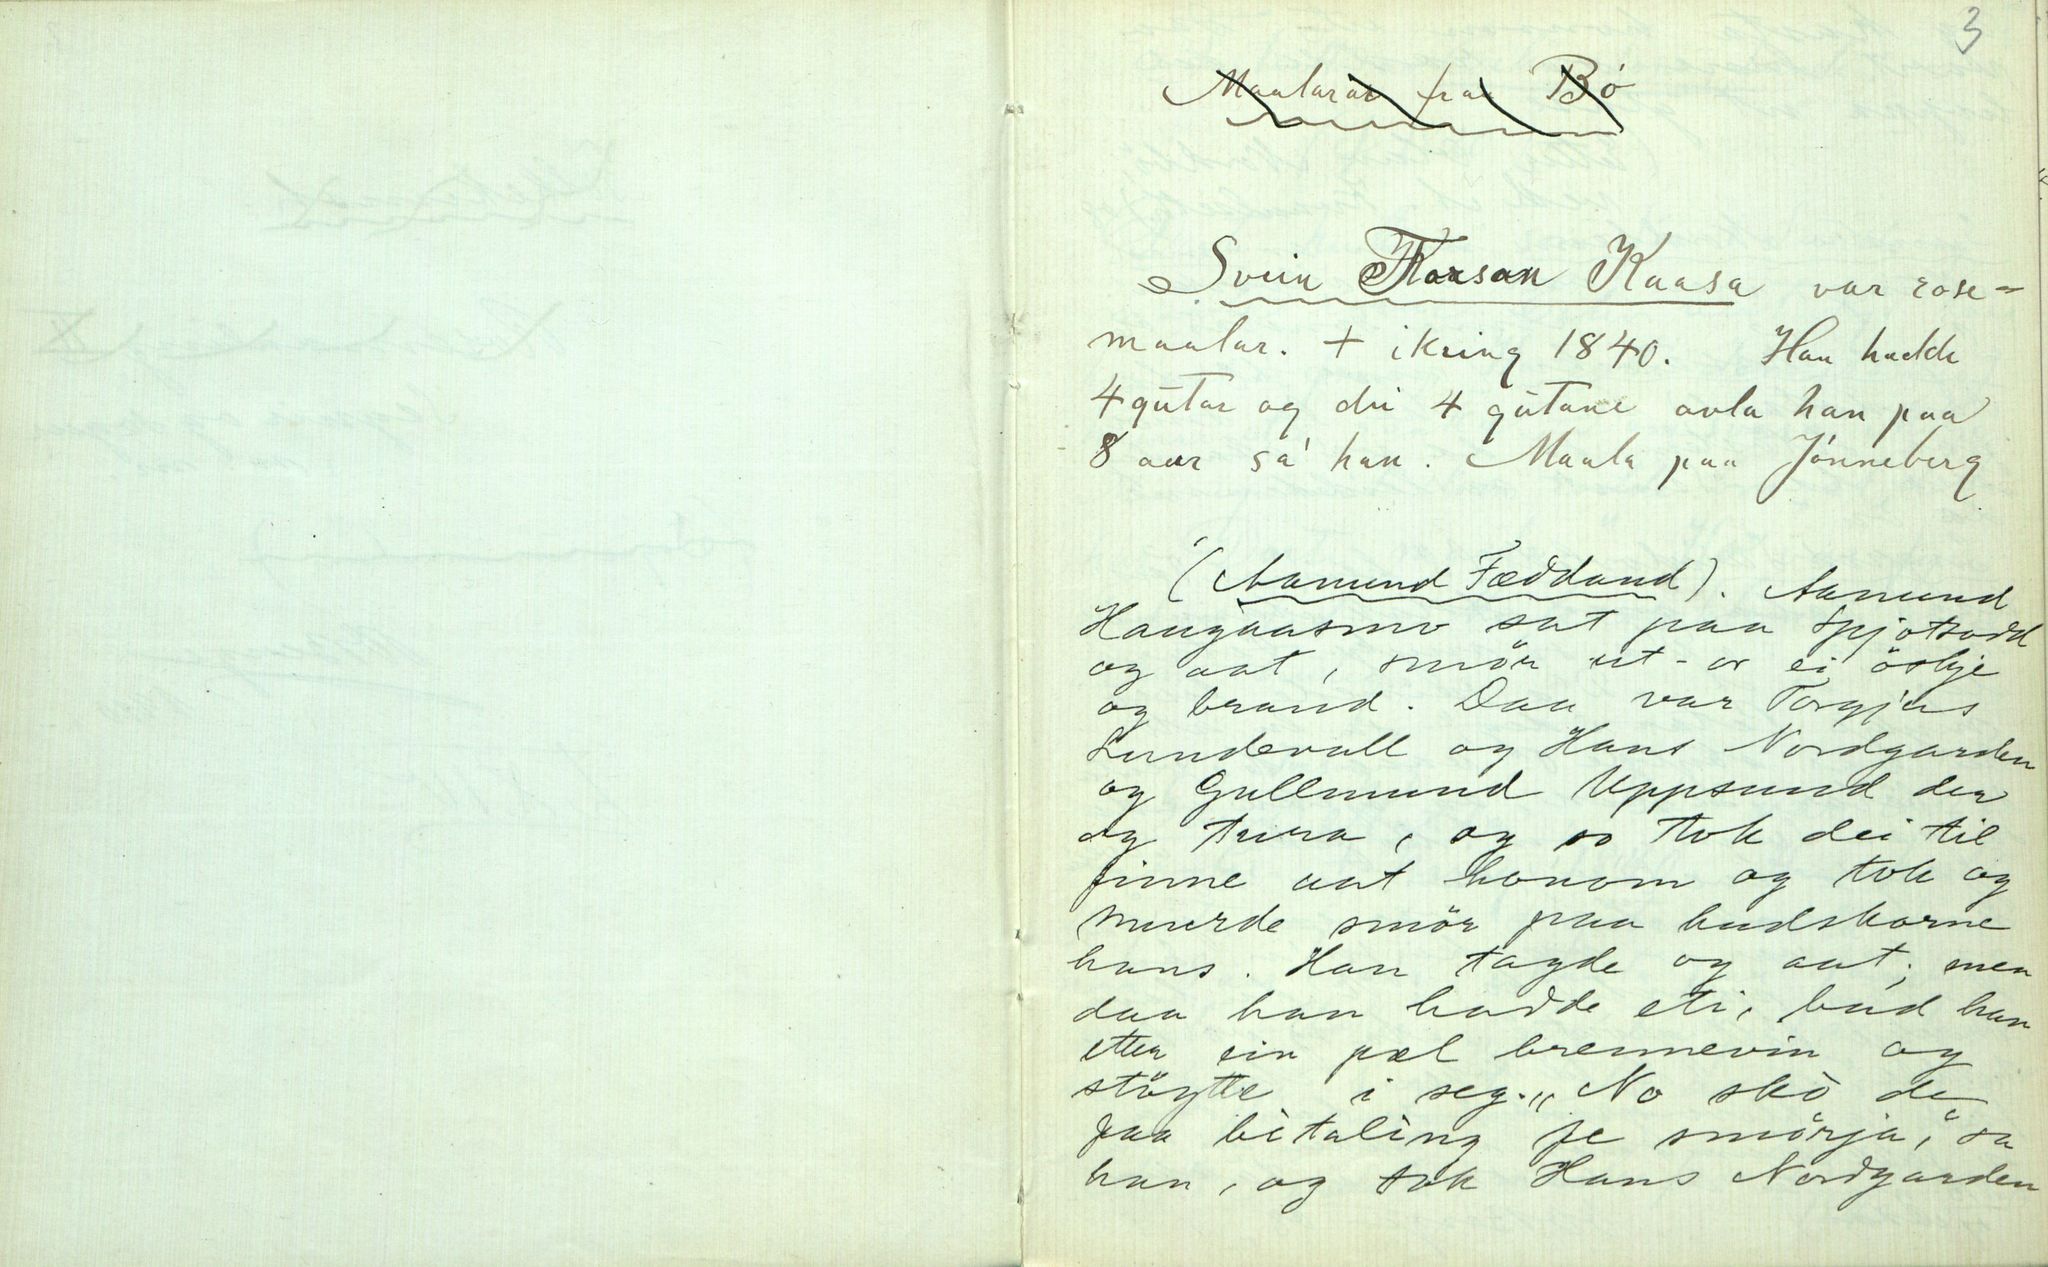 3
Maalarar fraa Bø
Svein Torson Kaasa var rose=
maalar. + ikring 1840. Han hadde
4 gutar og dei 4 gutane avla han paa
8 aar sá han. Maala paa Jønneberg
(Aamund Fæddand). Aamund
Haugaasmo sat paa Spjotsodd
og aat, smör ut-or ei öskje
og braud. Daa var Torgjus
Lundevall og Hans Nordgarden
og Gullmund Uppsund der
og , og so tok dei til
finne aat honom og tok og
smurde smör paa hudskorne
hans. Han tagde og aat; men
daa han hadde eti, bad han
etter ein pæl brennevin og
stöytte i seg. „No sko de
faa betaling fe smörja," sa
han, og tok Hans Nordgarden